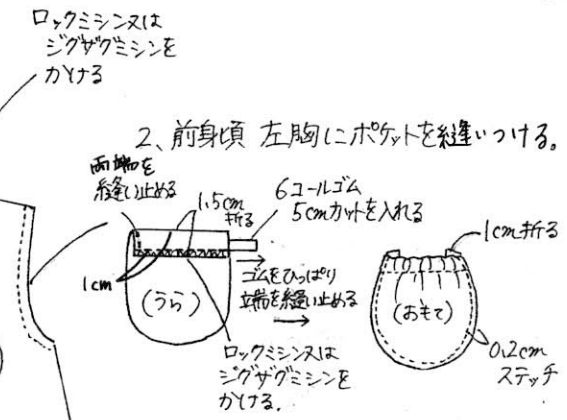 ロックミシン又は
ジグザグミシンを
かける
2、前身頃 左胸にポケットを縫いつける。
両端を
縫い止める
1.5cm
折る
6コールゴム
5cmカットを入れる
1cm
(うら)
ゴムをひっぱり
端を縫い止める
ロックミシン又は
ジグザグミシンを
かける.
1cm折る
(おもて)
0.2cm
ステッチ